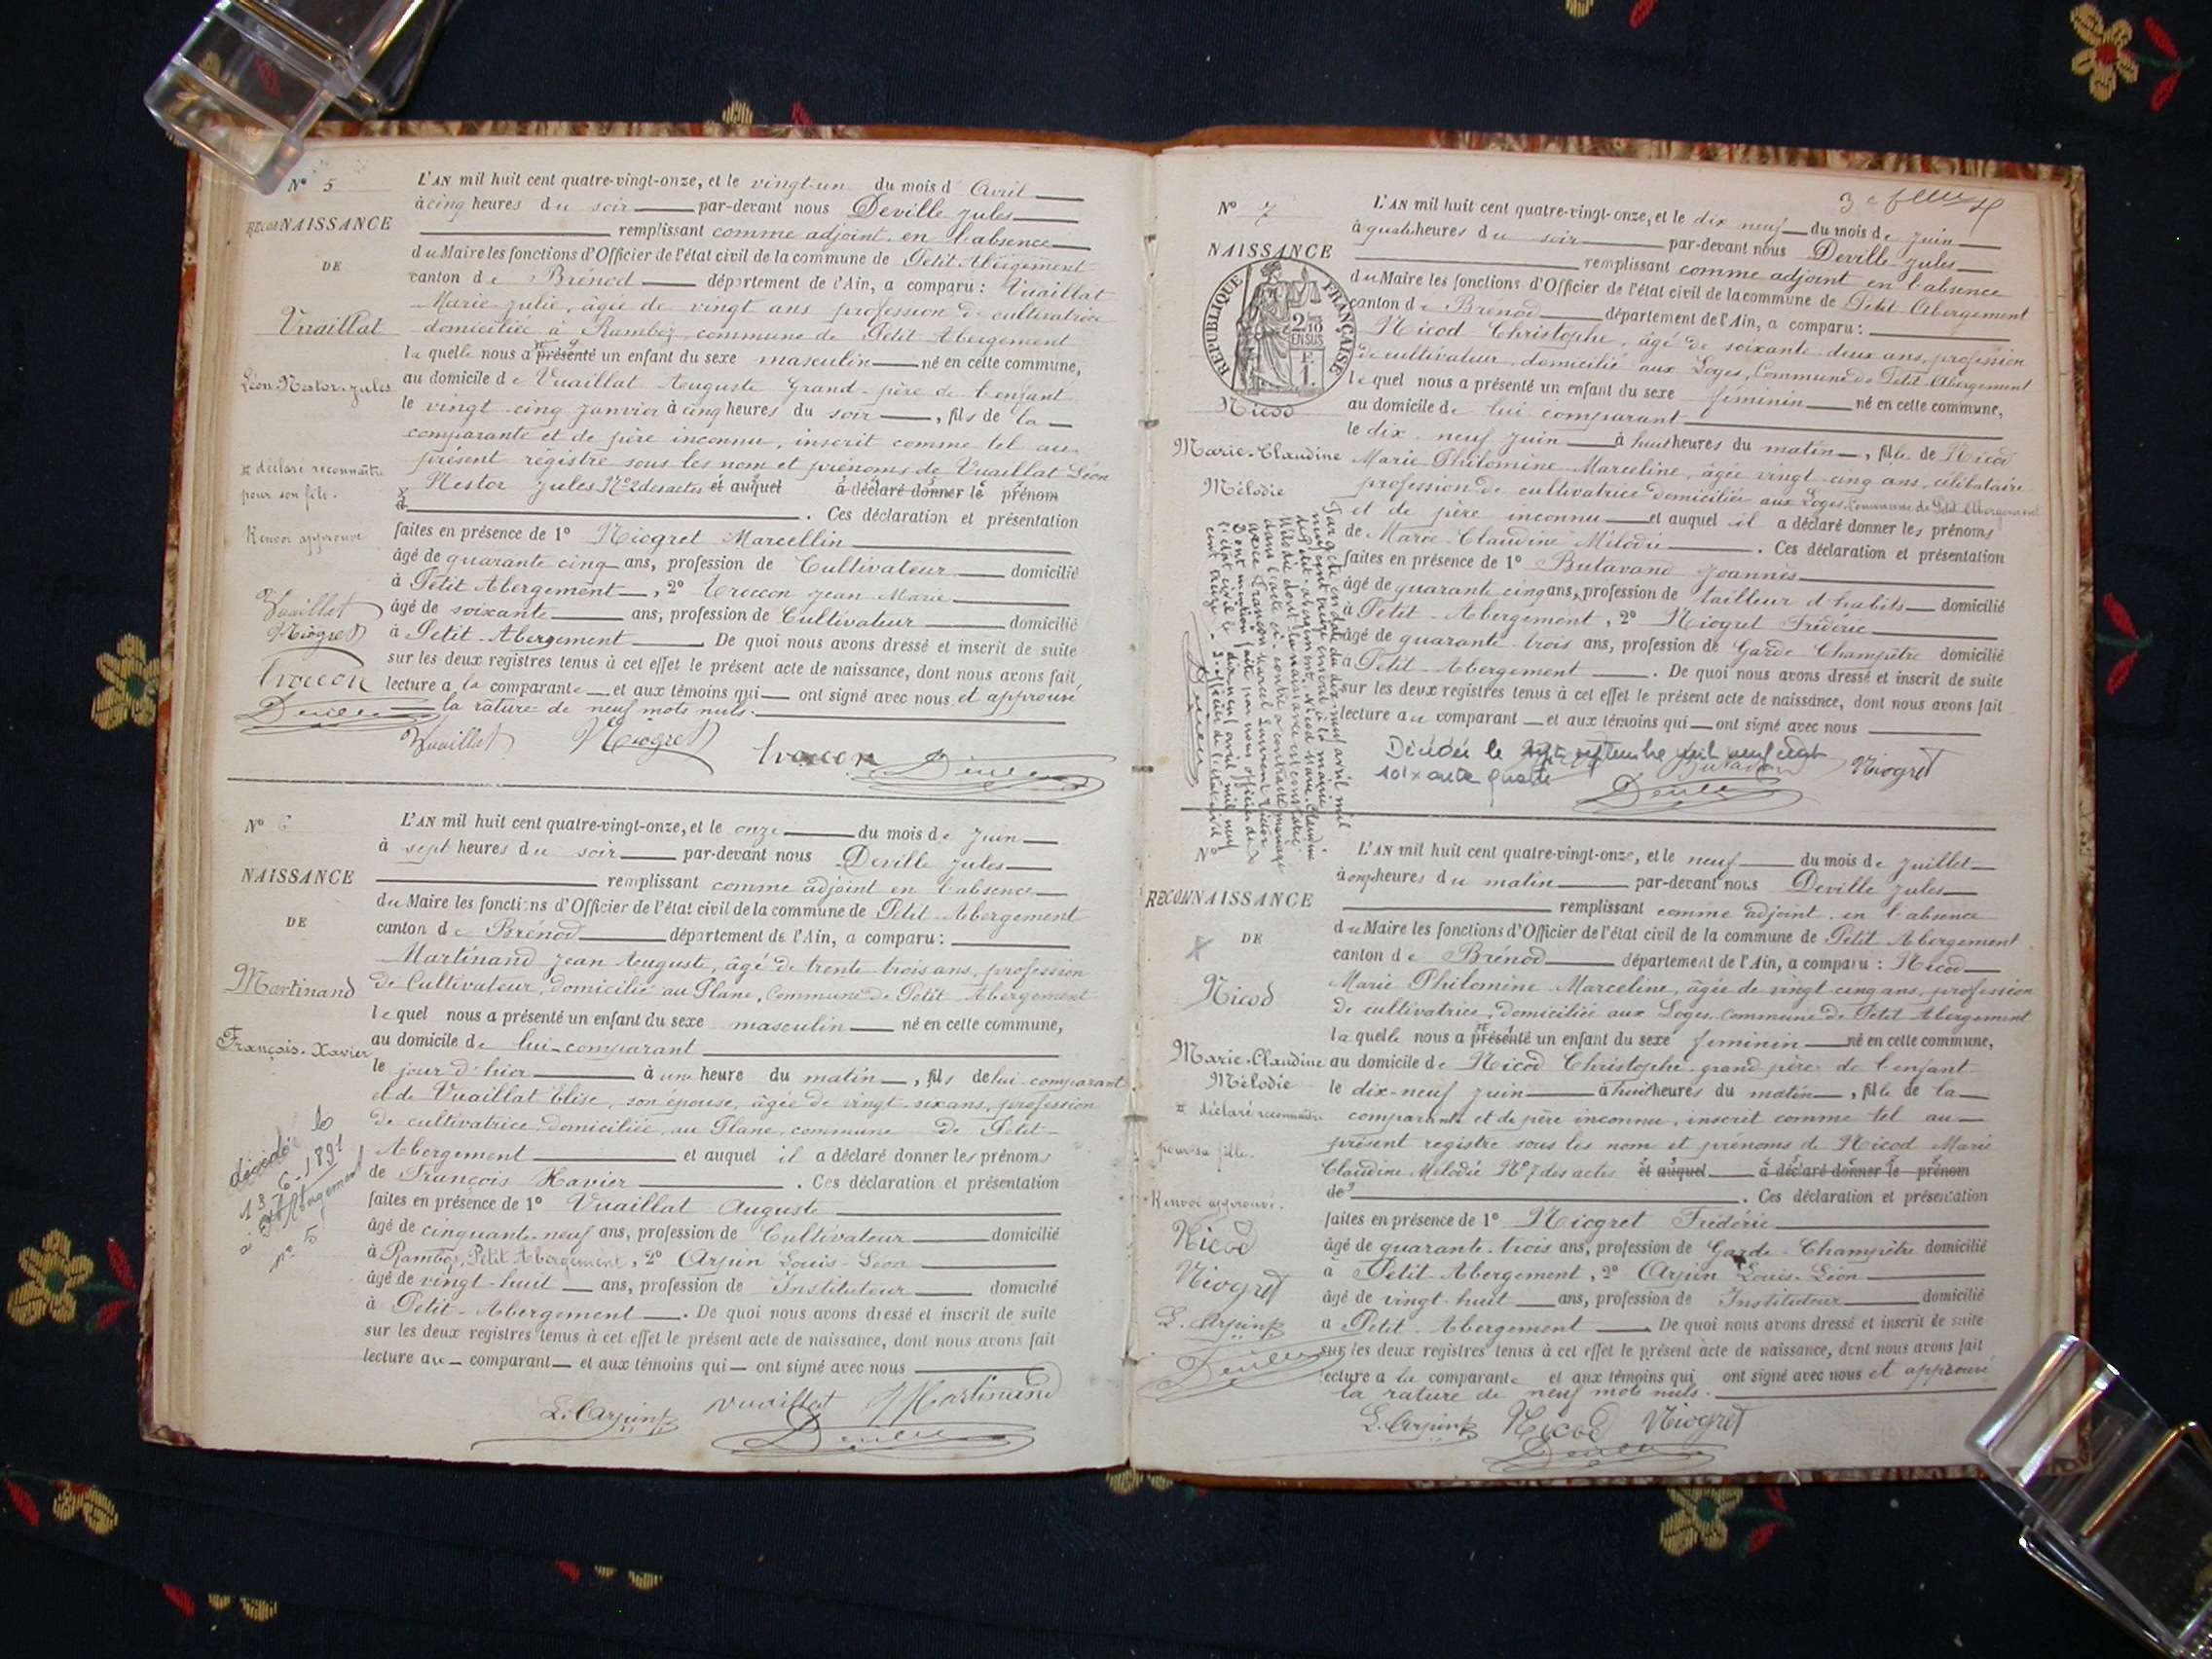 N° 5
RECONNAISSANCE
DE
Vuaillat
Léon-Nestor-Jules
# déclaré reconnaître
pour son fils.
Renvoi approuvé
Vuaillat
Niogret
Troccon
Deville
L'AN mil huit cent quatre-vingt-onze, et le vingt-un du mois d'Avril
à cinq heures du soir par-devant nous Deville Jules
remplissant comme adjoint en l'absence
du Maire les fonctions d'Officier de l'état civil de la commune de Petit Abergement
canton de Brénod département de l'Ain, a comparu : Vuaillat
Marie Julie, âgée de vingt ans profession de cultivatrice
domiciliée à Rambey, commune de Petit Abergement
laquelle nous a présenté un enfant du sexe masculin né en cette commune,
au domicile de Vuaillat Auguste Grand-père de l'enfant
le vingt-cinq janvier à cinq heures du soir, fils de la
comparante et de père inconnu, inscrit comme tel au
présent régistre sous les nom et prénoms de Vuaillat Léon
Nestor Jules N° 2 des actes et auquel a déclaré donner le prénom
d . Ces déclaration et présentation
faites en présence de 1° Niogret Marcellin
âgé de quarante cinq ans, profession de Cultivateur domicilié
à Petit Abergement, 2° Troccon Jean Marie
âgé de soixante ans, profession de Cultivateur domicilié
à Petit-Abergement. De quoi nous avons dressé et inscrit de suite
sur les deux registres tenus à cet effet le présent acte de naissance, dont nous avons fait
lecture a la comparante et aux témoins qui ont signé avec nous et approuvé
la rature de neuf mots nuls.
Vuaillat Niogret Troccon Deville
N° 6
NAISSANCE
DE
Martinand
François-Xavier
décédé le
13-6-1891
à Pt Abergement
n° 5
L'AN mil huit cent quatre-vingt-onze, et le onze du mois de Juin
à sept heures du soir par-devant nous Deville Jules
remplissant comme adjoint en l'absence
du Maire les fonctions d'Officier de l'état civil de la commune de Petit Abergement
canton de Brénod département de l'Ain, a comparu :
Martinand Jean Auguste, âgé de trente trois ans, profession
de Cultivateur, domicilié au Plane, Commune de Petit Abergement
lequel nous a présenté un enfant du sexe masculin né en cette commune,
au domicile de lui-comparant
le jour d'hier à une heure du matin, fils de lui comparant
et de Vuaillat Elise, son épouse, âgée de vingt-six ans, profession
de cultivatrice, domiciliée au Plane, commune de Petit-
Abergement et auquel il a déclaré donner les prénoms
de François Xavier . Ces déclaration et présentation
faites en présence de 1° Vuaillat Auguste
âgé de cinquante-neuf ans, profession de Cultivateur domicilié
à Rambey, Petit Abergement, 2° Arpin Louis-Léon
âgé de vingt-huit ans, profession de Instituteur domicilié
à Petit-Abergement. De quoi nous avons dressé et inscrit de suite
sur les deux registres tenus à cet effet le présent acte de naissance, dont nous avons fait
lecture au comparant et aux témoins qui ont signé avec nous
L. Arpin Vuaillat Martinand
Deville
3e
N° 7
NAISSANCE
RÉPUBLIQUE FRANÇAISE
2/10 EN SUS
F. 1.
Nicod
Marie-Claudine
Mélodie
L'AN mil huit cent quatre-vingt-onze, et le dix neuf du mois de Juin
à quatre heures du soir par-devant nous Deville Jules
remplissant comme adjoint en l'absence
du Maire les fonctions d'Officier de l'état civil de la commune de Petit Abergement
canton de Brénod département de l'Ain, a comparu :
Nicod Christophe, âgé de soixante-deux ans, profession
de cultivateur domicilié aux Loges, Commune de Petit Abergement
lequel nous a présenté un enfant du sexe féminin né en cette commune,
au domicile de lui comparant
le dix-neuf juin à huit heures du matin, fille de Nicod
Marie Philomène Marceline, âgée vingt cinq ans, célibataire
profession de cultivatrice domiciliée aux Loges Commune de Petit Abergement
et de père inconnu et auquel il a déclaré donner les prénoms
de Marie Claudine Mélodie . Ces déclaration et présentation
faites en présence de 1° Butavand Joannès
âgé de quarante cinq ans, profession de tailleur d'habits domicilié
à Petit-Abergement, 2° Niogret Frédéric
âgé de quarante-trois ans, profession de Garde Champêtre domicilié
à Petit-Abergement. De quoi nous avons dressé et inscrit de suite
sur les deux registres tenus à cet effet le présent acte de naissance, dont nous avons fait
lecture au comparant et aux témoins qui ont signé avec nous
Décédée le septembre mil neuf cent
soixante quatre
Butavand Niogret
Deville
Par acte en date du dix-neuf avril mil
N°
RECONNAISSANCE
DE
Nicod
Marie-Claudine
Mélodie
# déclaré reconnaître
pour sa fille.
Renvoi approuvé.
Nicod
Niogret
L. Arpin
Deville
L'AN mil huit cent quatre-vingt-onze, et le neuf du mois de Juillet
à onze heures du matin par-devant nous Deville Jules
remplissant comme adjoint en l'absence
du Maire les fonctions d'Officier de l'état civil de la commune de Petit Abergement
canton de Brénod département de l'Ain, a comparu : Nicod
Marie Philomène Marceline, âgée de vingt cinq ans, profession
de cultivatrice, domiciliée aux Loges commune de Petit Abergement
laquelle nous a présenté un enfant du sexe féminin né en cette commune,
au domicile de Nicod Christophe grand père de l'enfant
le dix-neuf juin à huit heures du matin, fille de la
comparante et de père inconnu, inscrit comme tel au
présent registre sous les nom et prénoms de Nicod Marie
Claudine Mélodie N° 7 des actes et auquel a déclaré donner le prénom
de . Ces déclaration et présentation
faites en présence de 1° Niogret Frédéric
âgé de quarante-trois ans, profession de Garde-Champêtre domicilié
à Petit-Abergement, 2° Arpin Louis-Léon
âgé de vingt-huit ans, profession de Instituteur domicilié
à Petit-Abergement. De quoi nous avons dressé et inscrit de suite
sur les deux registres tenus à cet effet le présent acte de naissance, dont nous avons fait
lecture a la comparante et aux témoins qui ont signé avec nous et approuvé
la rature de neuf mots nuls.
L. Arpin Nicod Niogret
Deville